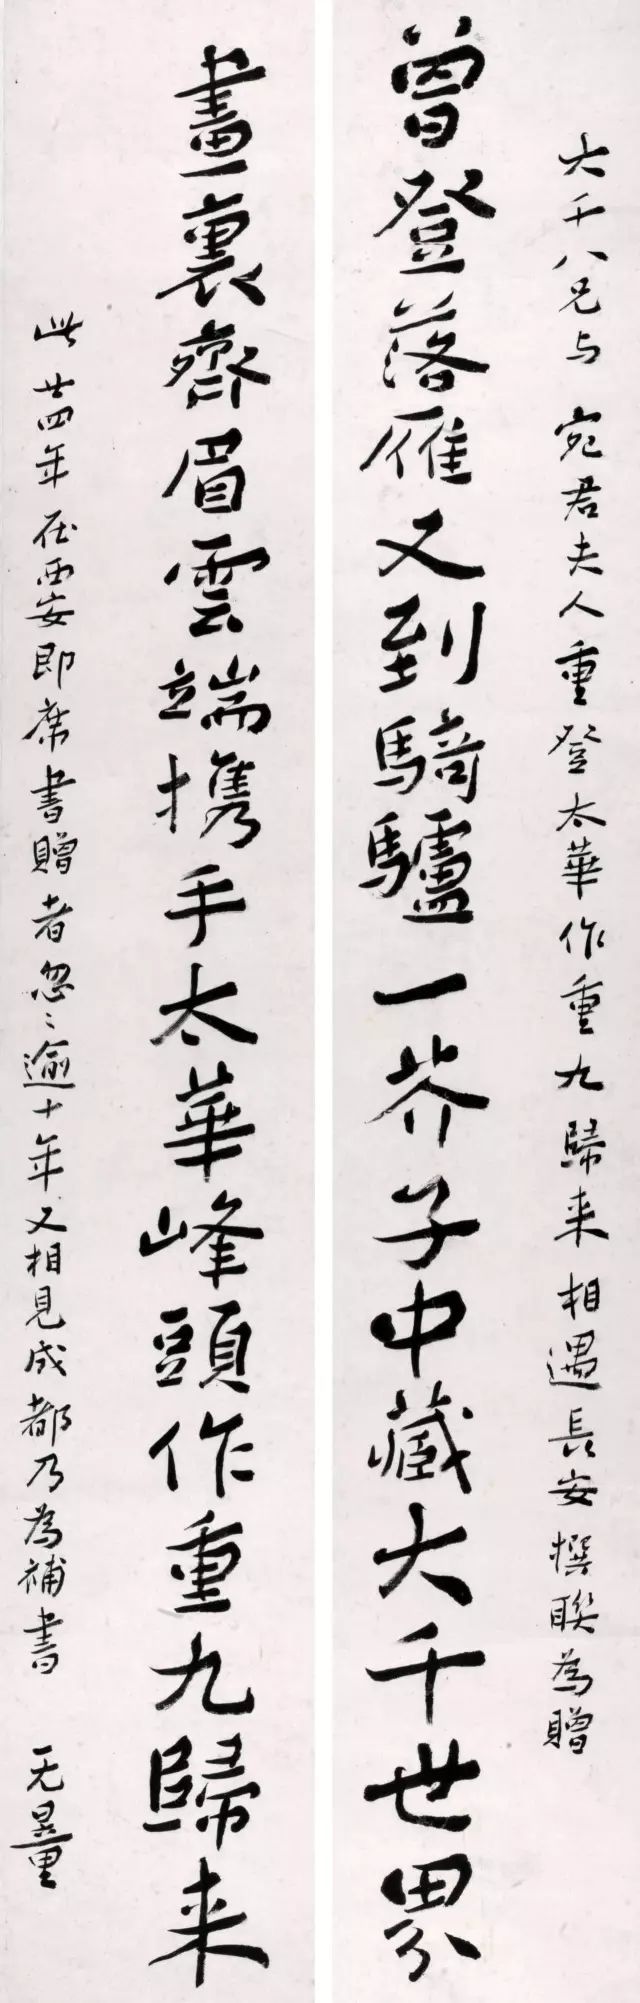 大千八兄与 宛君夫人重登太華作重九歸来相遇長安撰聯為贈
曾登落雁又到騎驢一芥子中藏大千世界
畫裏齊眉雲端携手太華峰頭作重九歸来
此廿四年在西安即席書贈者忽〻逾十年又相見成都乃為補書 无量